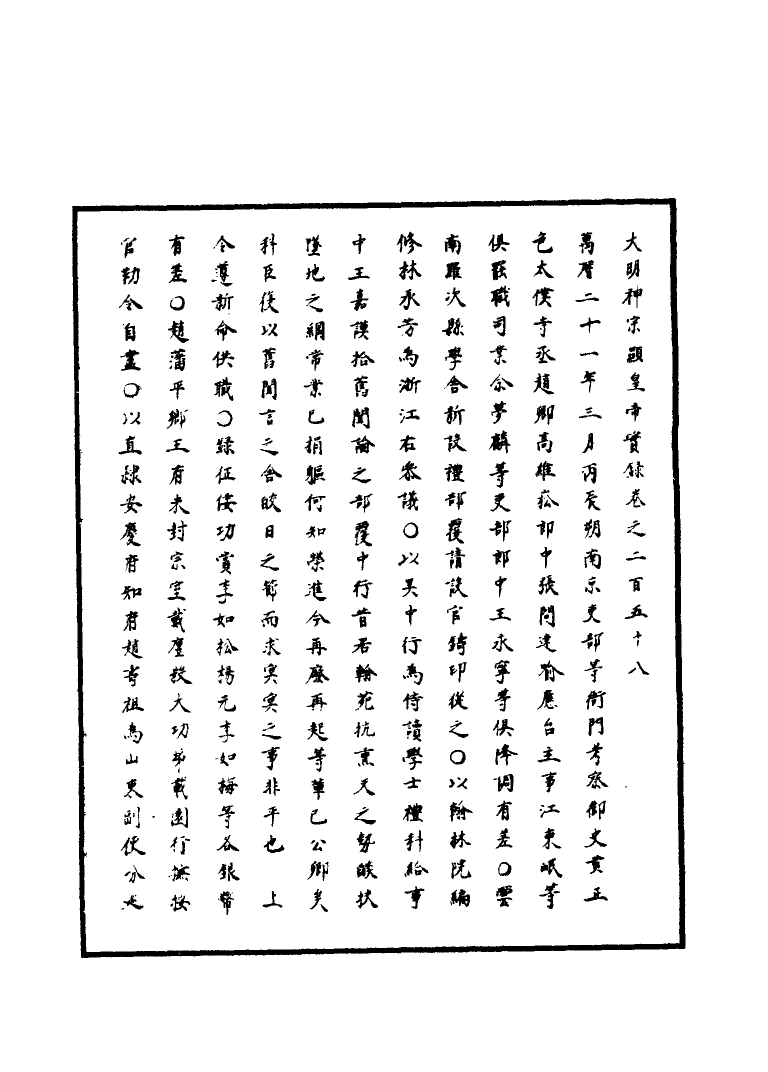 大明神宗顯皇帝實録卷之二百五十八
萬曆二十一年三月丙辰朔南京吏部等衙門考察御史貢王
色太僕寺丞趙卿高維崧郎中張問達喻應台主事江東岷等
俱罷職司業余夢麟等吏部郎中王永寧等俱降調有差○雲
南羅次縣學舍新設禮部覆請設官鑄印從之○以翰林院編
修林承芳為浙江右叅議○以吳中行為侍讀學士禮科給事
中王嘉謨拾舊聞論之部覆中行昔居翰苑抗熏天之勢燄扶
墜地之綱常業已捐軀何知榮進今再廢再起等輩已公卿矣
科臣復以舊聞言之舍皎日之節而求冥冥之事非平也 上
令遵新命供職○録征倭功賞李如松楊元李如梅等各銀幣
有差○趙藩平鄉王府未封宗室載塵毆大功弟載園行撫按
官勒令自盡○以直隸安慶府知府趙壽祖為山東副使分巡